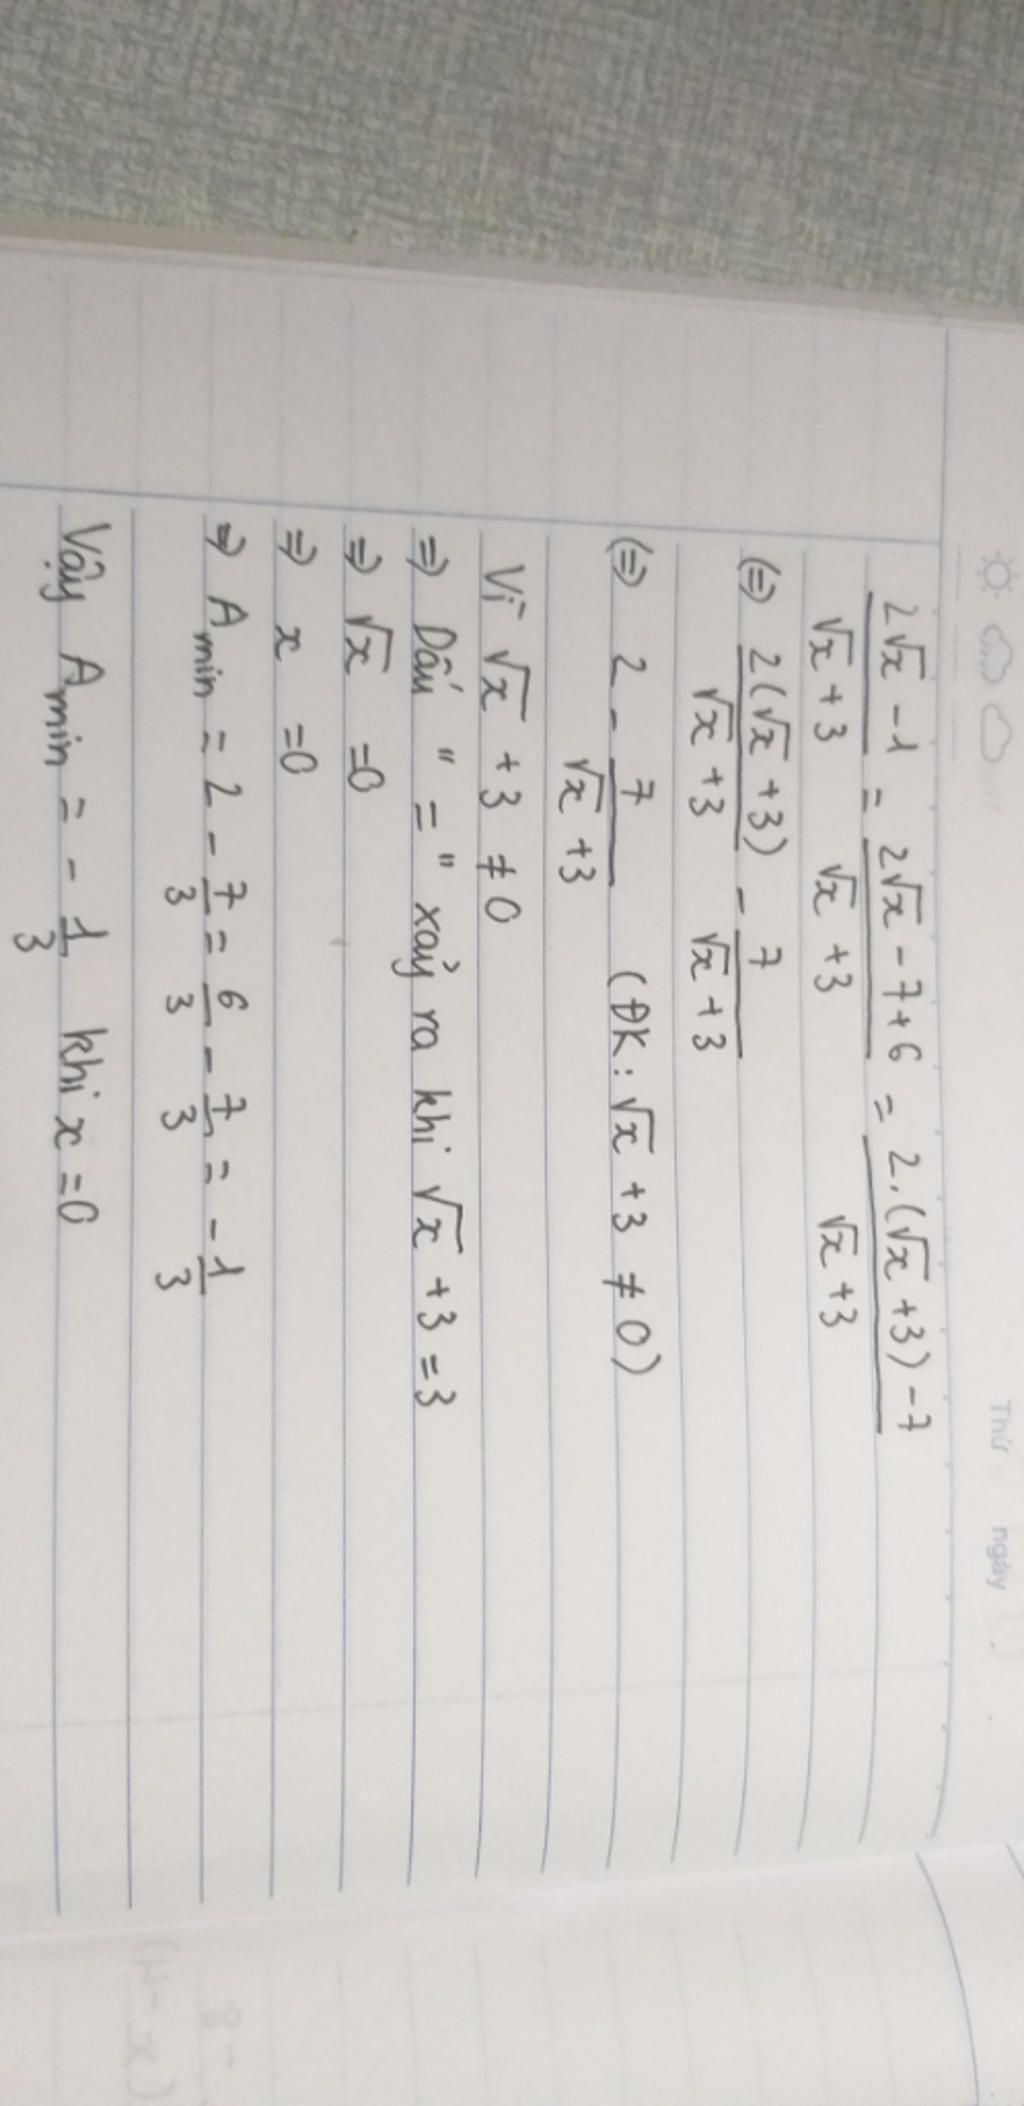 Thứ ngày
2√x - 1 / √x + 3 = 2√x - 7 + 6 / √x + 3 = 2.(√x + 3) - 7 / √x + 3
(=) 2(√x + 3) / √x + 3 - 7 / √x + 3
(=) 2 - 7 / √x + 3 (ĐK: √x + 3 ≠ 0)
Vì √x + 3 ≠ 0
=) Dấu " = " xảy ra khi √x + 3 = 3
=) √x = 0
=) x = 0
=) Amin = 2 - 7/3 = 6/3 - 7/3 = - 1/3
Vậy Amin = - 1/3 khi x = 0